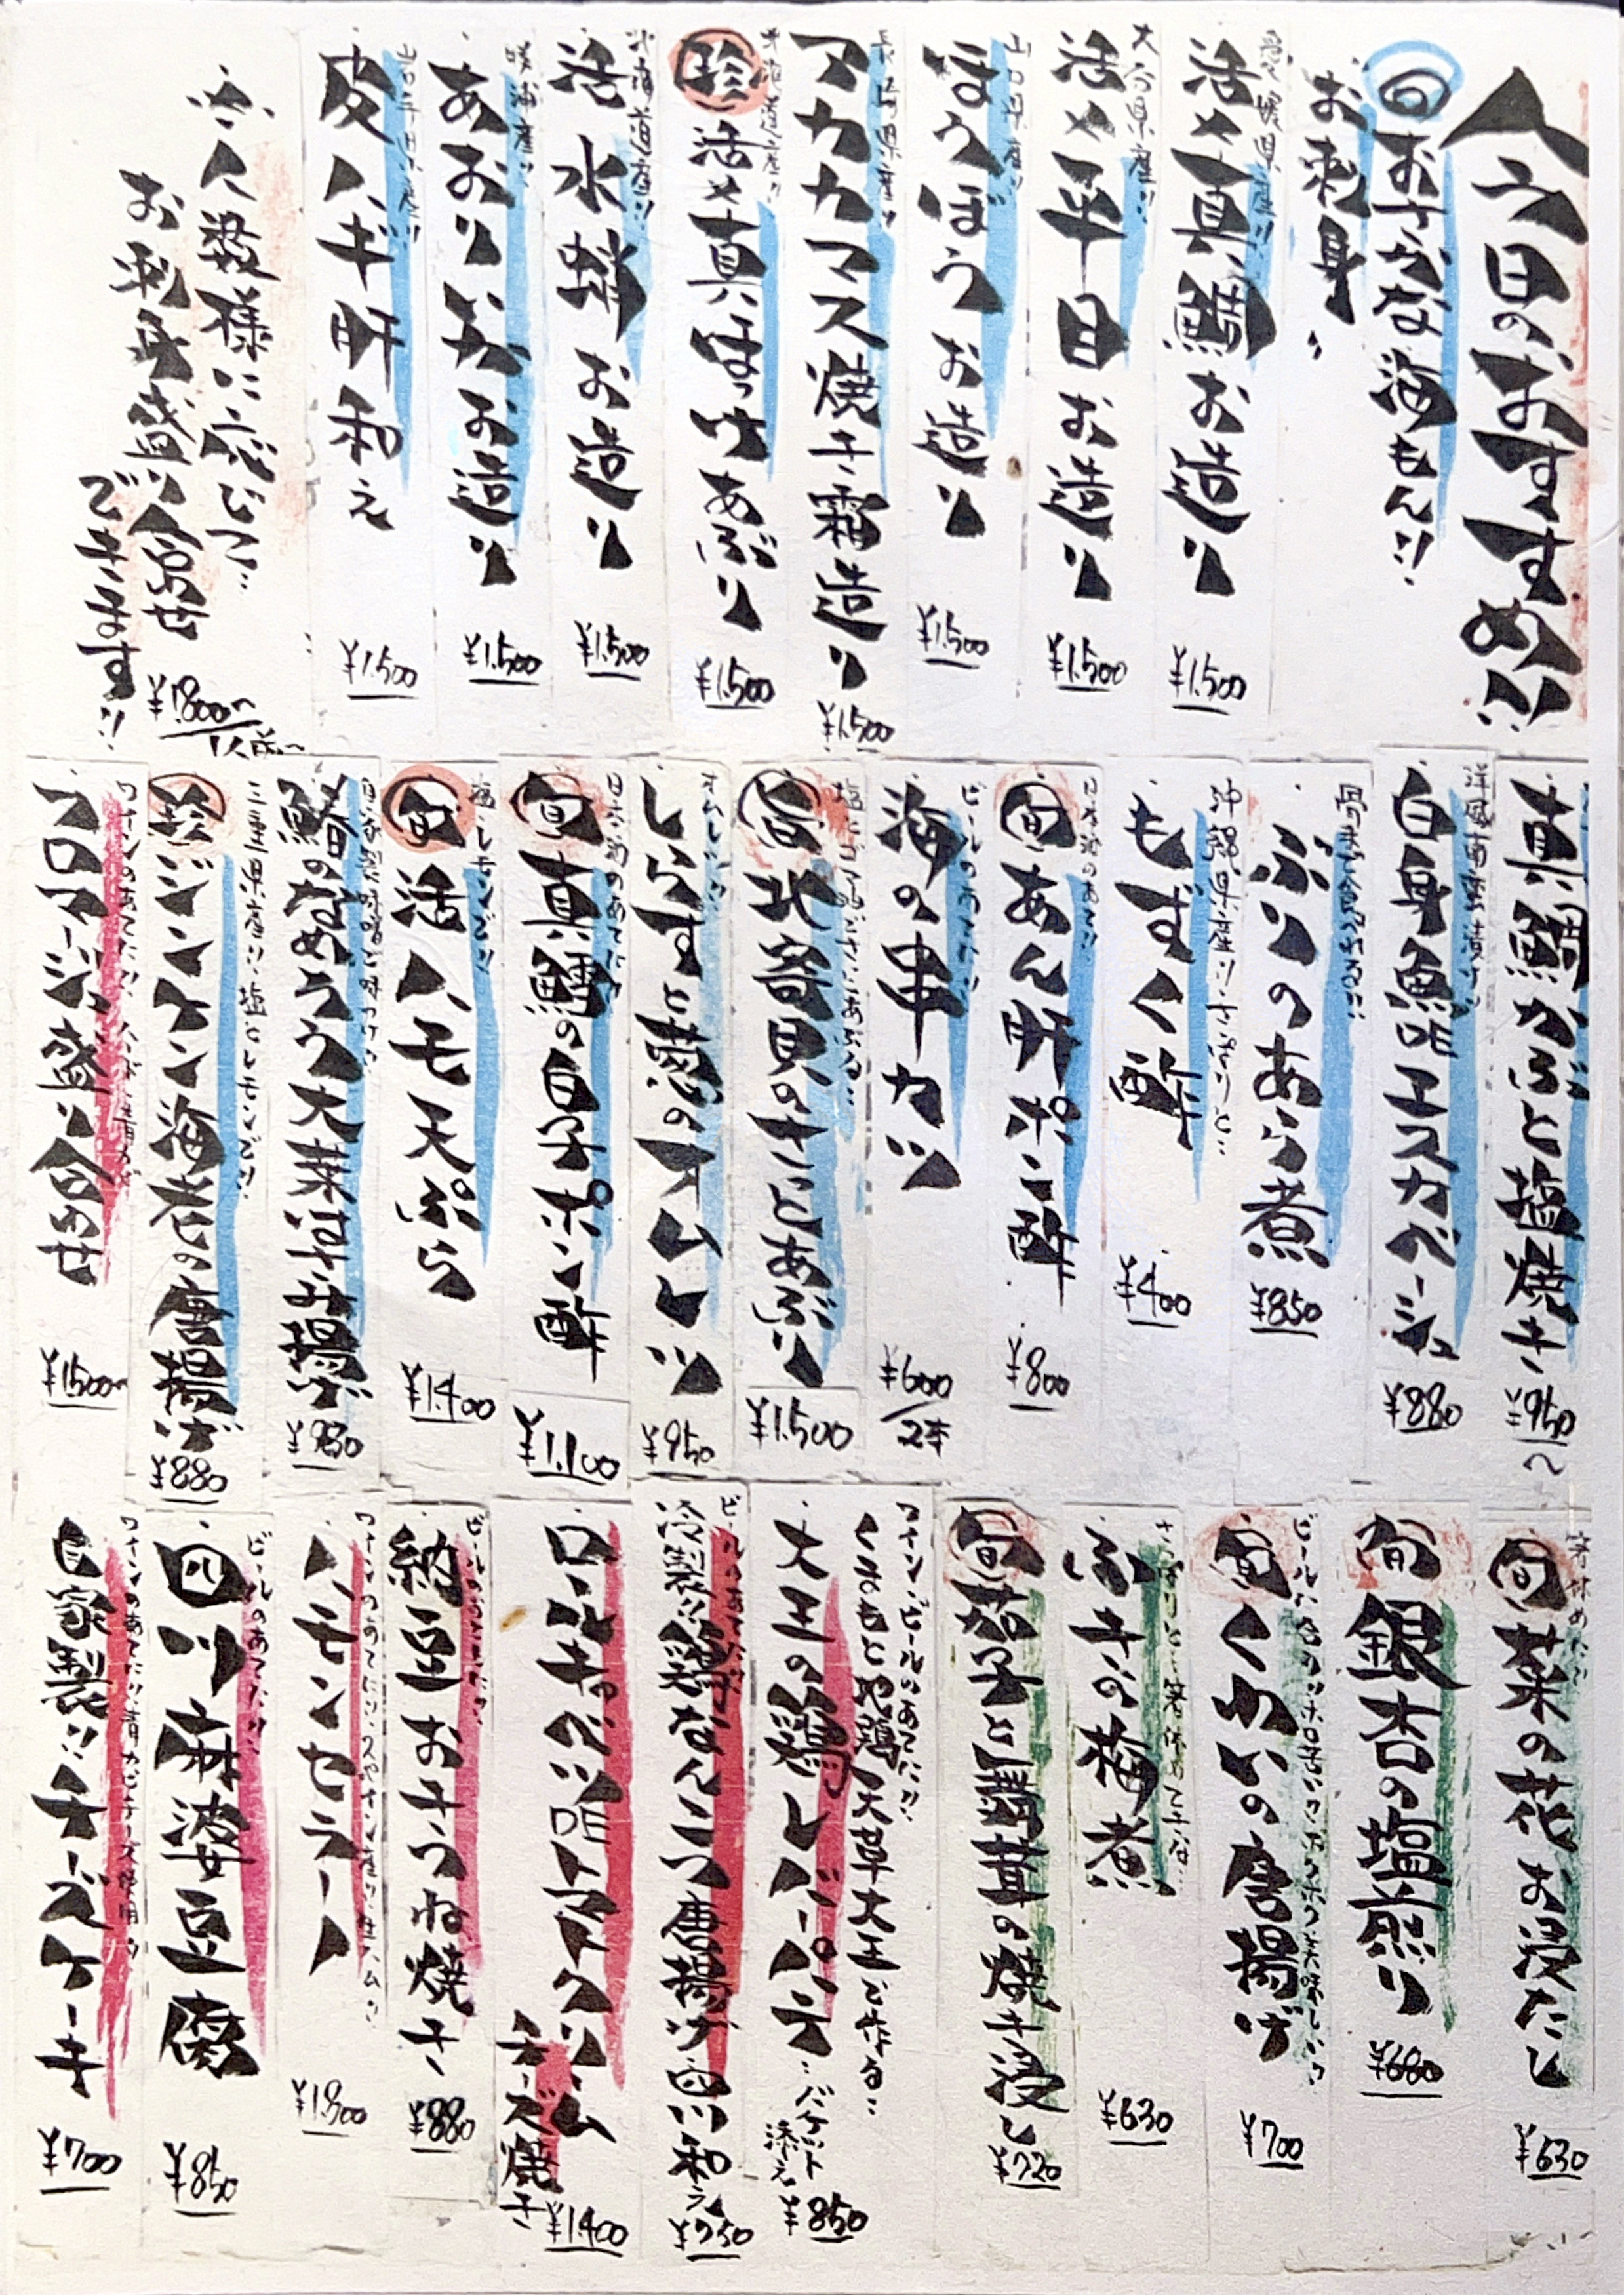 今日のおすすめ!!
旬おさかな海もん!!
お刺身
愛媛県産!!
活〆真鯛お造り
¥1.500
大分県産!!
活〆平目お造り
¥1.500
山口県産!!
ほうぼうお造り
¥1.500
長崎県産!!
アカカマス焼き霜造り
¥1.500
北海道産!!
珍 活〆真ほっけあぶり
¥1.500
北海道産!!
活水蛸お造り
¥1.500
あおりいかお造り
¥1.500
皮ハギ肝和え
¥1.500
人数様に応じて…
お刺身盛り合せ
できます!!
¥1.800〜/1人前〜
真鯛かぶと塩焼き
¥950〜
洋風南蛮漬け
白身魚のエスカベーシュ
¥880
骨まで食べれる!!
ぶりのあら煮
¥850
沖縄県産!!さっぱりと…
もずく酢
¥400
日本酒のあて!!
旬 あん肝ポン酢
¥800
ビールのあてに!!
海の串カツ
¥600/2本
塩とゴマ油でさっとあぶる…
旬 北寄貝のさっとあぶり
¥1.500
オムレツ!!
しらすと葱のオムレツ
¥950
日本酒のあてに!!
旬 真鱈の白子ポン酢
¥1.100
塩、レモンで!!
旬 活ハモ天ぷら
¥1.400
自家製味噌で味つけ!!
鯵のなめろう大葉はさみ揚げ
¥930
三重県産!!塩とレモンで!!
珍 ジンケン海老の唐揚げ
¥880
フロマージュ盛り合わせ
¥1500〜
箸休めに!!
旬 菜の花お浸たし
¥630
旬 銀杏の塩煎り
¥680
旬 くわいの唐揚げ
¥700
さっぱりと…箸休めてきな…
ふきの梅煮
¥630
旬 茄子と舞茸の焼き浸し
¥720
ワイン、ビールのあてに!!
くまもと地鶏天草大王で作る…
大王の鶏レバーパテ…バケット添え
¥850
ビールのあてに!!
冷製!!鶏なんこつ唐揚げ四川和え
¥750
ロールキャベツのトマトクリームチーズ焼き
¥1400
納豆おきつね焼き
¥880
ワインのあてに!!スペイン産!!生ハム!!
ハモンセラーノ
ビールのあてに!!
四川麻婆豆腐
¥850
ワインのあてに!!青カビチーズ使用!!
自家製!!チーズケーキ
¥700